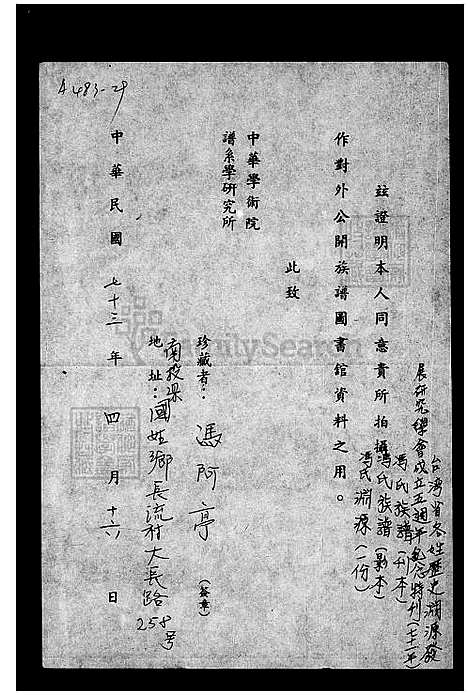 A483-29
台灣省各姓歷史淵源發
展研究學會成立五週年紀念特刊(七二年)
茲證明本人同意貴所拍攝
馮氏族譜(刊本)
馮氏族譜(影本)
馮氏淵源(一份)
作對外公開族譜圖書館資料之用。
此致
中華學術院
譜系學研究所
珍藏者:馮阿亭(簽章)
地址:南投縣
國姓鄉長流村大長路258號
中華民國七十三年四月十六日
FamilySearch